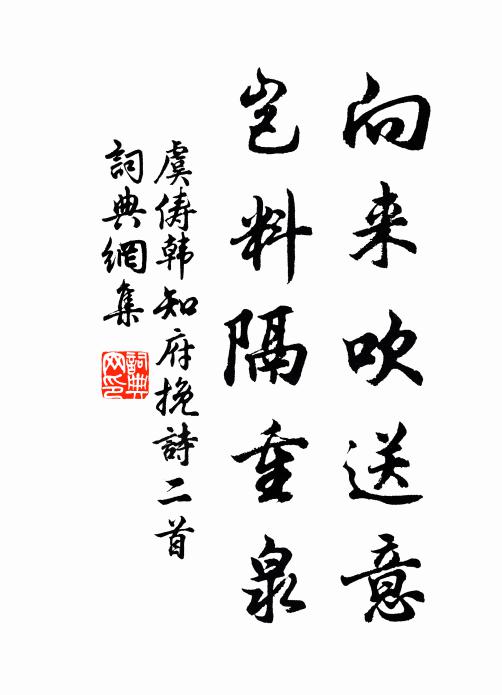 向来吹送意
岂料隔重泉
虞俦韩知府挽詩二首
詞典網集
詞典網印